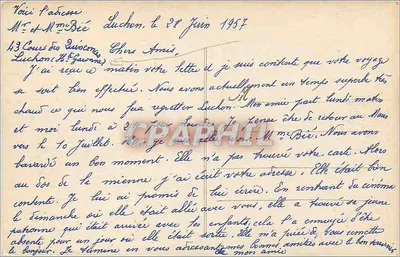 Voici l'adresse
Mr et Mme Bié Luchon, le 28 Juin 1957
43 Cours des Quinconces
Luchon (Hte Garonne) Chers Amis,
J'ai reçu ce matin votre lettre et je suis contente que votre voyage
se soit bien effectué. Nous avons actuellement un temps superbe très
chaud ce qui nous fera regretter Luchon. Mon amie part lundi matin
et moi lundi à Je pense être de retour au Mans
vers le 10 Juillet. Mme Bié. Nous avons
bavardé un bon moment. Elle n'a pas trouvé votre carte. Alors
au dos de la mienne j'ai écrit votre adresse. Elle était bien
contente. Je lui ai promis de lui écrire. En rentrant du cinéma
le dimanche où elle était allée avec vous, elle a trouvé sa jeune
patronne qui était arrivée avec les enfants, cela l'a ennuyée d'être
absente pour un jour où elle était sortie. Elle m'a priée de vous remettre
le bonjour. Je termine en vous adressant mes bonnes amitiés avec le bon souvenir
de mon amie